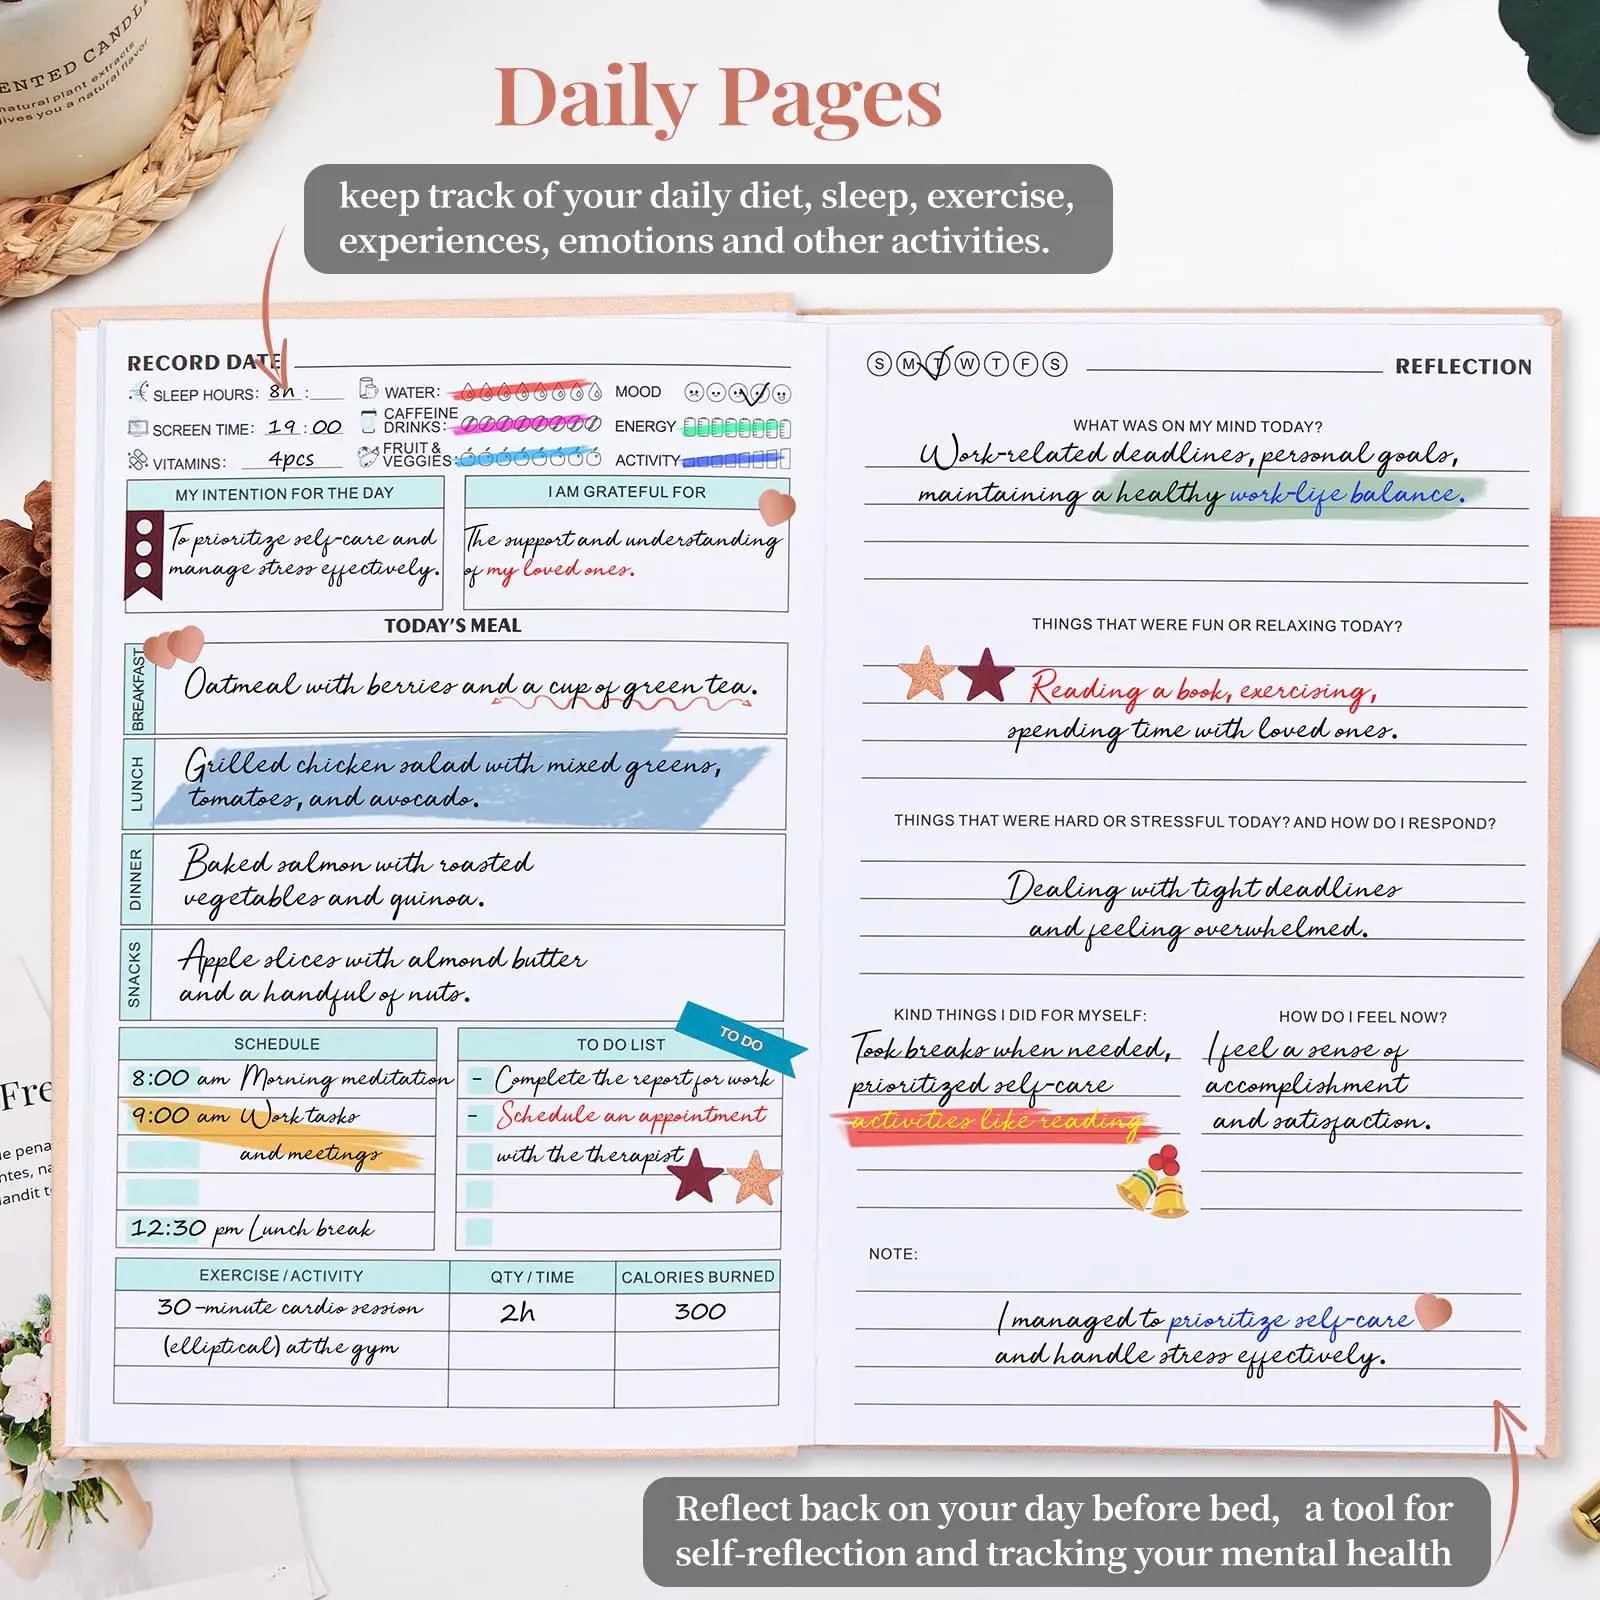 ENTED CANDL
natural plant extracts
gives you a natural flavor
Daily Pages
keep track of your daily diet, sleep, exercise,
experiences, emotions and other activities.
RECORD DATE
SLEEP HOURS: 8h :
WATER:
MOOD
SCREEN TIME: 19:00
CAFFEINE
DRINKS:
ENERGY
VITAMINS: 4pcs
FRUIT &
VEGGIES:
ACTIVITY
MY INTENTION FOR THE DAY
To prioritize self-care and
manage stress effectively.
I AM GRATEFUL FOR
The support and understanding
of my loved ones.
TODAY'S MEAL
BREAKFAST
Oatmeal with berries and a cup of green tea.
LUNCH
Grilled chicken salad with mixed greens,
tomatoes, and avocado.
DINNER
Baked salmon with roasted
vegetables and quinoa.
SNACKS
Apple slices with almond butter
and a handful of nuts.
SCHEDULE
8:00 am Morning meditation
9:00 am Work tasks
and meetings
12:30 pm Lunch break
TO DO LIST
TO DO
- Complete the report for work
- Schedule an appointment
with the therapist
EXERCISE / ACTIVITY
QTY / TIME
CALORIES BURNED
30-minute cardio session
2h
300
(elliptical) at the gym
S M T W T F S
REFLECTION
WHAT WAS ON MY MIND TODAY?
Work-related deadlines, personal goals,
maintaining a healthy work-life balance.
THINGS THAT WERE FUN OR RELAXING TODAY?
Reading a book, exercising,
spending time with loved ones.
THINGS THAT WERE HARD OR STRESSFUL TODAY? AND HOW DO I RESPOND?
Dealing with tight deadlines
and feeling overwhelmed.
KIND THINGS I DID FOR MYSELF:
Took breaks when needed,
prioritized self-care
activities like reading
HOW DO I FEEL NOW?
I feel a sense of
accomplishment
and satisfaction.
NOTE:
I managed to prioritize self-care
and handle stress effectively.
Reflect back on your day before bed, a tool for
self-reflection and tracking your mental health
Fre